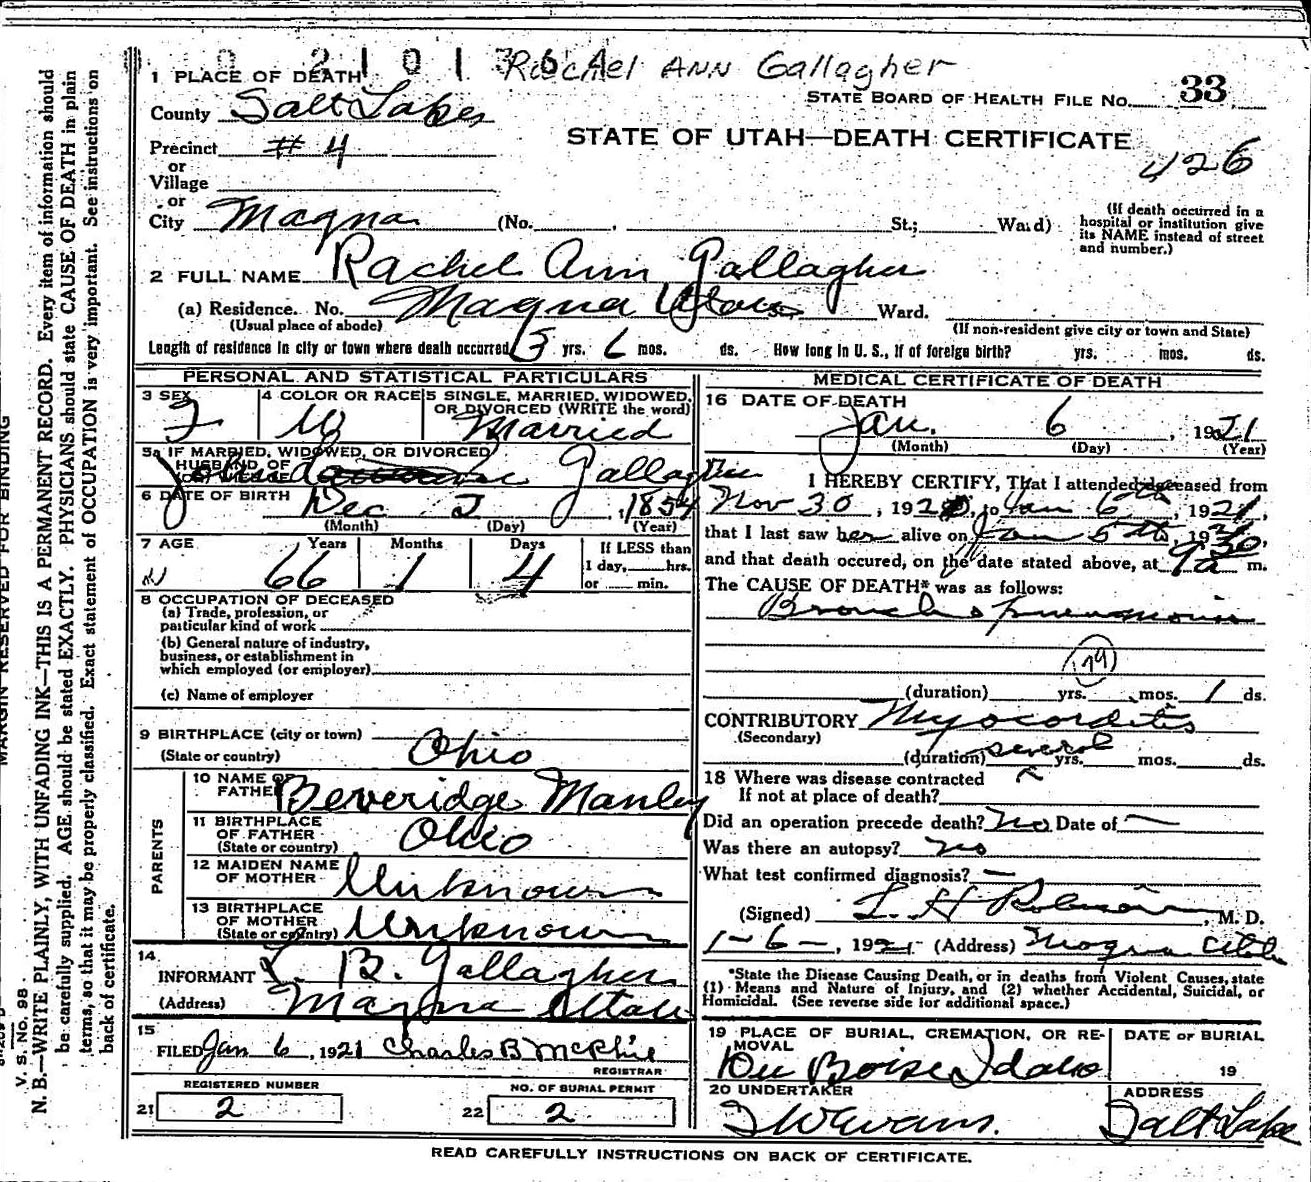 Rachel Ann Gallagher
1 PLACE OF DEATH
STATE BOARD OF HEALTH FILE NO. 33
County Salt Lake
STATE OF UTAH—DEATH CERTIFICATE
426
Precinct #4
or
Village
or
City Magna (No. St.; Ward)
(If death occurred in a hospital or institution give its NAME instead of street and number.)
2 FULL NAME Rachel Ann Gallagher
(a) Residence. No. Magna Utah St., Ward.
(Usual place of abode) (If non-resident give city or town and State)
Length of residence in city or town where death occurred 3 yrs. 6 mos. ds. How long in U. S., if of foreign birth? yrs. mos. ds.
PERSONAL AND STATISTICAL PARTICULARS
3 SEX F
4 COLOR OR RACE W
5 SINGLE, MARRIED, WIDOWED, OR DIVORCED (WRITE the word) Married
5a IF MARRIED, WIDOWED, OR DIVORCED
HUSBAND OF
Gallagher
6 DATE OF BIRTH Dec 2, 1854
(Month) (Day) (Year)
7 AGE Years Months Days If LESS than
66 1 4 1 day, hrs.
or min.
8 OCCUPATION OF DECEASED
(a) Trade, profession, or
particular kind of work
(b) General nature of industry,
business, or establishment in
which employed (or employer)
(c) Name of employer
9 BIRTHPLACE (city or town)
(State or country) Ohio
PARENTS
10 NAME OF FATHER Beveridge Manley
11 BIRTHPLACE OF FATHER (State or country) Ohio
12 MAIDEN NAME OF MOTHER Unknown
13 BIRTHPLACE OF MOTHER (State or country) Unknown
14
INFORMANT L. B. Gallagher
(Address) Magna Utah
15
FILED Jan 6, 1921 Charles B McPhie
REGISTRAR
REGISTERED NUMBER
21 2
NO. OF BURIAL PERMIT
22 2
MEDICAL CERTIFICATE OF DEATH
16 DATE OF DEATH
Jan. 6, 1921
(Month) (Day) (Year)
I HEREBY CERTIFY, That I attended deceased from
Nov 30, 1920, to Jan 6th, 1921,
that I last saw her alive on Jan 5th, 19
and that death occured, on the date stated above, at m.
The CAUSE OF DEATH* was as follows:
Broncho pneumonia
(duration) yrs. mos. 1 ds.
CONTRIBUTORY Myocorditis
(Secondary)
(duration) several yrs. mos. ds.
18 Where was disease contracted
If not at place of death?
Did an operation precede death? No Date of —
Was there an autopsy? no
What test confirmed diagnosis? —
(Signed) L. H. Robinson, M. D.
1-6-, 1921 (Address) Magna Utah
*State the Disease Causing Death, or in deaths from Violent Causes, state
(1) Means and Nature of Injury, and (2) whether Accidental, Suicidal, or
Homicidal. (See reverse side for additional space.)
19 PLACE OF BURIAL, CREMATION, OR REMOVAL
Boise Idaho
DATE OF BURIAL
19
20 UNDERTAKER
ADDRESS
Salt Lake
READ CAREFULLY INSTRUCTIONS ON BACK OF CERTIFICATE.
MARGIN RESERVED FOR BINDING
V. S. No. 98
N. B.—WRITE PLAINLY, WITH UNFADING INK—THIS IS A PERMANENT RECORD. Every item of information should
be carefully supplied. AGE should be stated EXACTLY. PHYSICIANS should state CAUSE OF DEATH in plain
terms, so that it may be properly classified. Exact statement of OCCUPATION is very important. See instructions on
back of certificate.